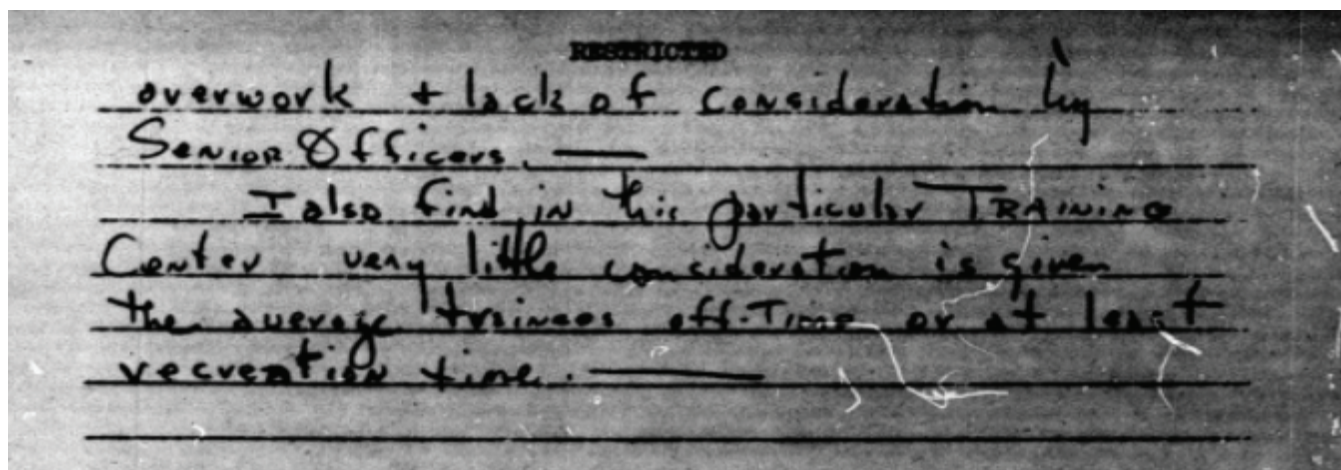 RESTRICTED
overwork + lack of consideration by
Senior Officers. —
I also find in this particular TRAINING
Center very little consideration is given
the average trainees off-Time or at least
recreation time. —